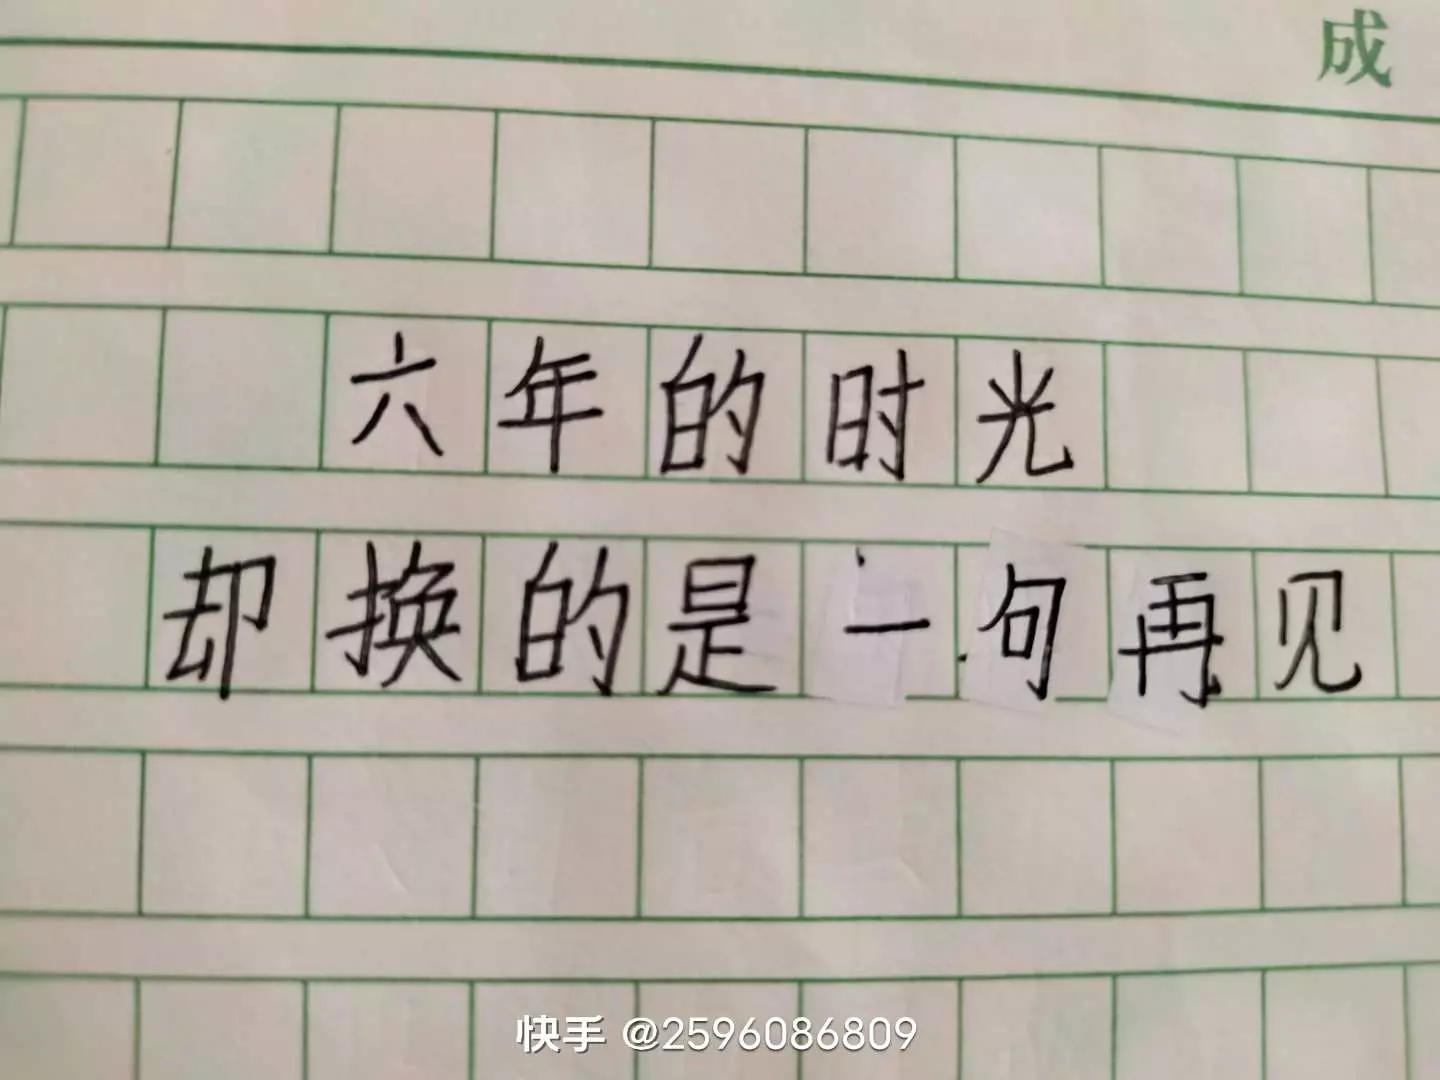 成
六年的时光
却换的是一句再见
快手 @2596086809